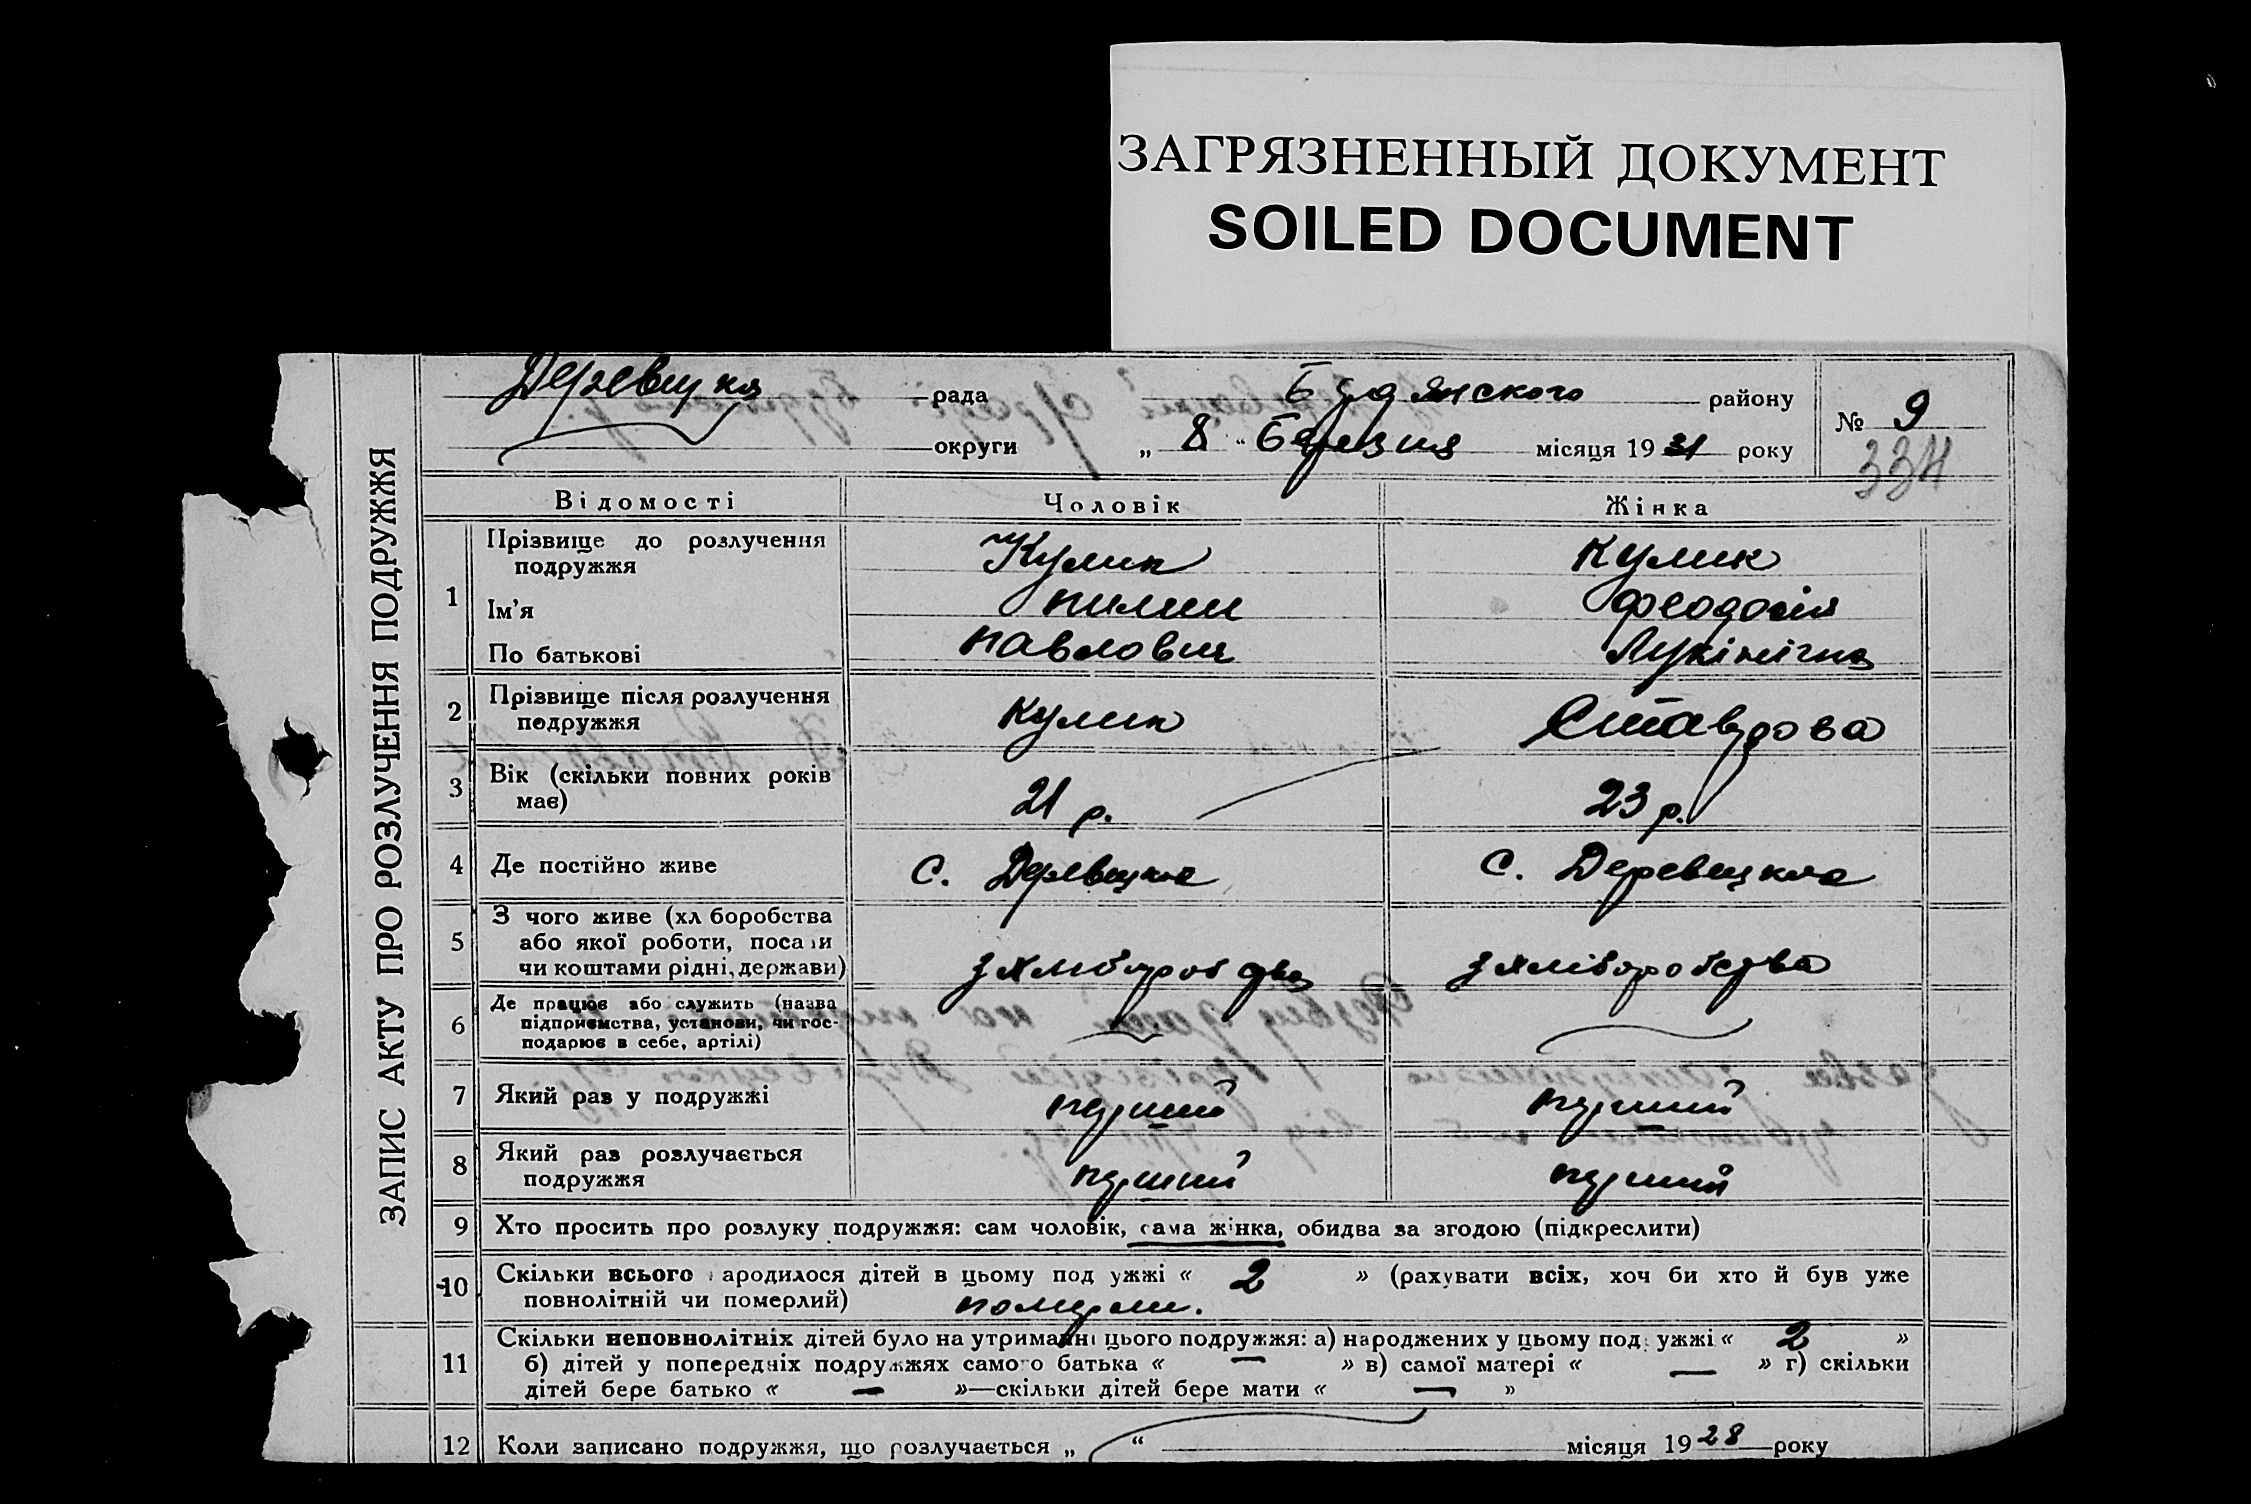 ЗАГРЯЗНЕННЫЙ ДОКУМЕНТ
SOILED DOCUMENT
ЗАПИС АКТУ ПРО РОЗЛУЧЕННЯ ПОДРУЖЖЯ
Деревецка рада Будянского району № 9
округи „ 8 “ Березня місяця 1931 року
334
Відомості Чоловік Жінка
1 Прізвище до розлучення подружжя Кулик Кулик
Ім'я Пилип Феодосія
По батькові Павлович Лукінічна
2 Прізвище після розлучення подружжя Кулик Ставрова
3 Вік (скільки повних років має) 21 р. 23 р.
4 Де постійно живе с. Деревецке с. Деревецке
5 З чого живе (хл боробства або якої роботи, посади чи коштами рідні, держави) з хліборобства з хліборобства
6 Де працює або служить (назва підприємства, установи, чи господарює в себе, артілі)
7 Який раз у подружжі перший перший
8 Який раз розлучається подружжя перший перший
9 Хто просить про розлуку подружжя: сам чоловік, сама жінка, обидва за згодою (підкреслити)
10 Скільки всього народилося дітей в цьому под ужжі « 2 » (рахувати всіх, хоч би хто й був уже
повнолітній чи померлий) померли.
11 Скільки неповнолітніх дітей було на утриманні цього подружжя: а) народжених у цьому под ужжі « 2 »
б) дітей у попередніх подружжях самого батька « — » в) самої матері « — » г) скільки
дітей бере батько « — »—скільки дітей бере мати « — »
12 Коли записано подружжя, що розлучається „ “ місяця 1928 року